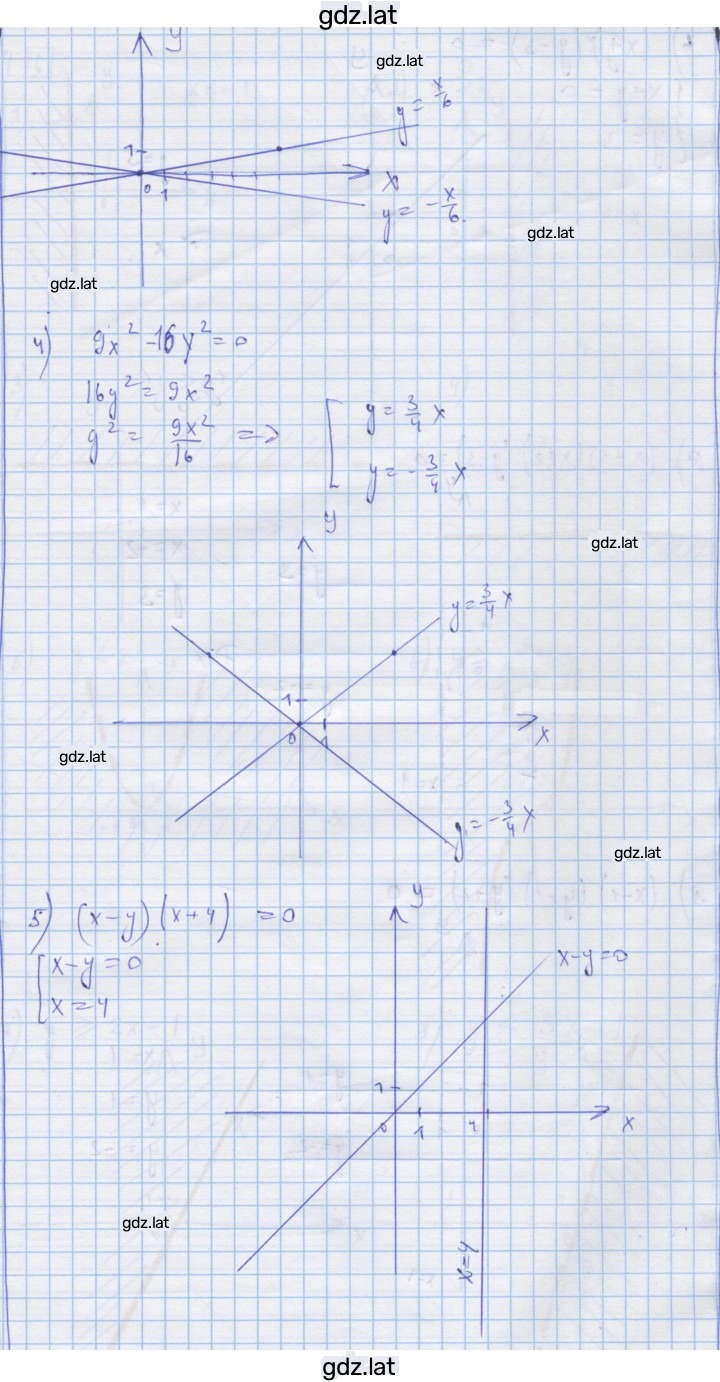 gdz.lat
y
gdz.lat
y = x/6
1
0 1
x
y = -x/6.
gdz.lat
gdz.lat
4) 9x² - 16y² = 0
16y² = 9x²
y² = 9x²/16 => [ y = 3/4 x
y = -3/4 x
y
gdz.lat
y = 3/4 x
1
0 1
x
gdz.lat
y = -3/4 x
gdz.lat
5) (x-y)(x+4) = 0
y
[ x-y=0
x=4
x-y=0
1
0 1 4
x
gdz.lat
x=4
gdz.lat